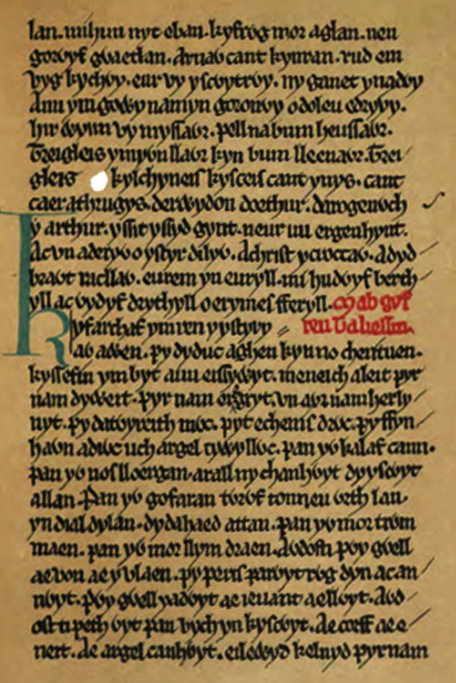 lan. mihun nyt eban. kyfrwg mor aglan. neu
goruyf gwaetlan. arnaw cant kynran. rud em
vyg kychwy. eur vy yscwytrwy. ny ganet yn adwy
auu ym gowy namyn goronwy o doleu edrywy.
hir wynn vy myssawr. pell na bum heussawr.
Treigleis y mywn llawr kyn bum lleenawr. Trei
gleis kylchyneis kysceis cant ynys. cant
caer athrugys. derwydon doethur. darogenwch
y arthur. yssit yssyd gynt. neur mi ergenhynt.
Ac vn aderyw o ystyr dilyw. Achrist ycroccaw. A dyd
brawt racllaw. eurem yn euryll. mi hudwyf berth
yll ac ydwyf drythyll o erymes fferyll. Mab gyf
Kyfarchaf ym ren y ystyry reu taliessin.
aw awen. py dyduc aghen kyn no cherituen.
kyssefin ym byt auu eissywyt. meneich aleit pyr
nam dyweit. pyr nam eisgyt. vn awr nam herly
nyt. py datwyreith mwc. pyt echenis drwc. py ffyn
hawn adiwc uch argel tywyllwc. pan yw kalaf cann.
pan yw nos lloergan. arall ny chanhwyt dy yscwyt
allan. Pan yw gofaran twrwf tonneu wrth lan.
yn dial dylan. dydahaed attan. pan yw mor trwm
maen. pan yw mor llym draen. Awdosti pwy gwell
ae von ae y vlaen. py peris parwyt rwg dyn ac an
nwyt. Pwy gwell y adwyt ae ieuanc ae llwyt. Awd
osti peth wyt pan vych yn kyscwyt. Ae corff ae e
neit. Ae argel canhwyt. eilewyd keluyd pyr nam